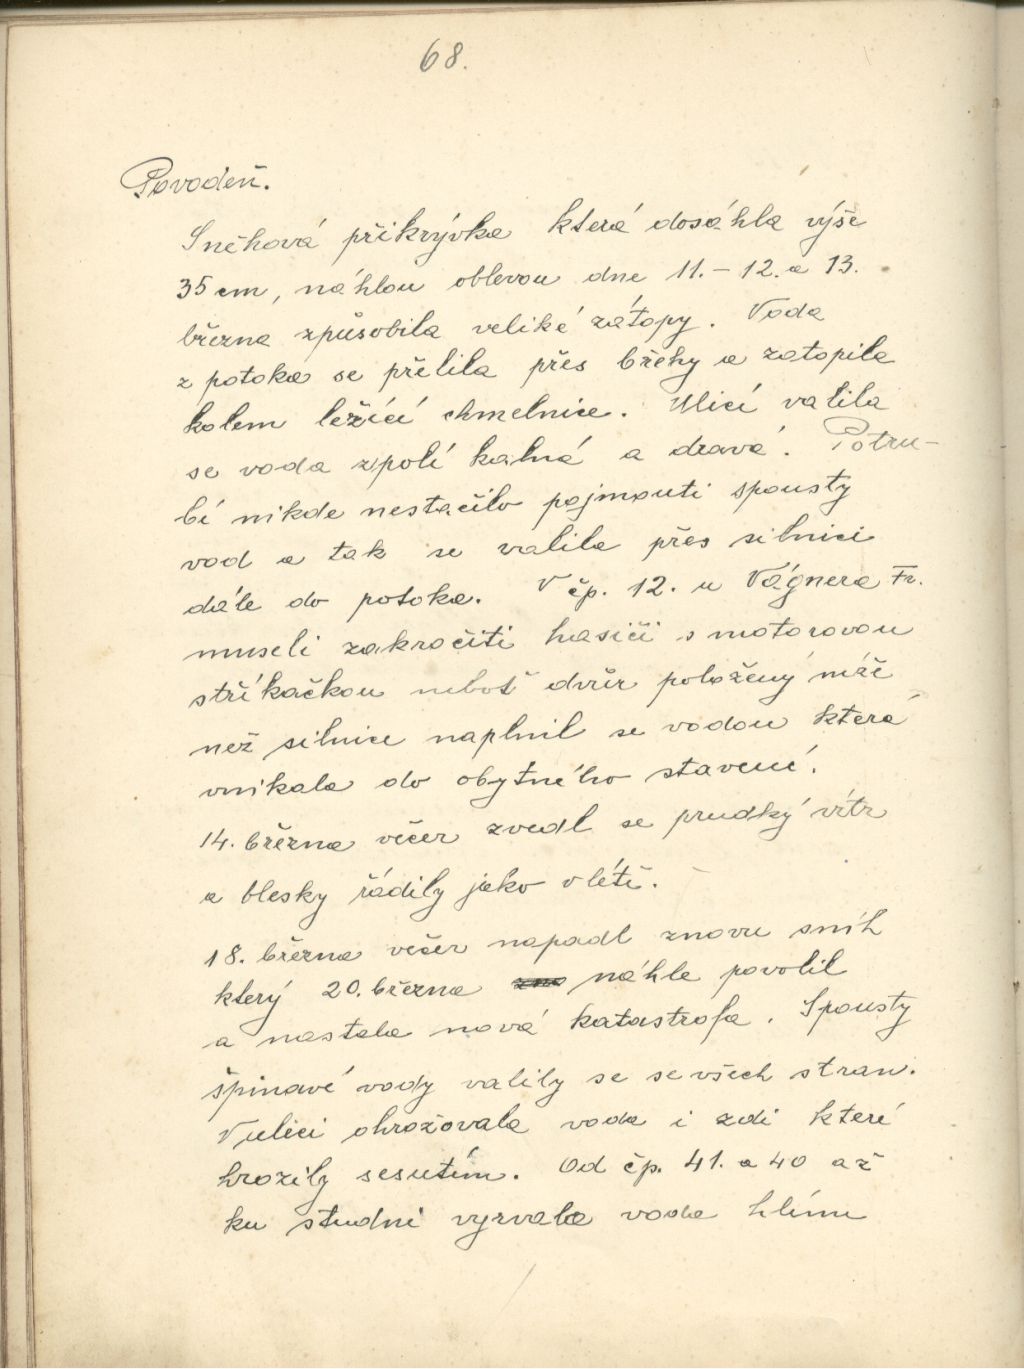 68.
Povodeň.
Sněhová přikrývka která dosáhla výše
35 cm, náhlou oblevou dne 11. – 12. a 13.
března způsobila veliké zátopy. Voda
z potoka se přelila přes břehy a zatopila
kolem ležící chmelnice. Ulicí valila
se voda z polí kalná a dravá. Potru-
bí nikde nestačilo pojmouti spousty
vod a tak se valila přes silnici
dále do potoka. V čp. 12. u Vágnera Fr.
museli zakročiti hasiči s motorovou
stříkačkou neboť dvůr položený níže
než silnice naplnil se vodou která
vnikala do obytného stavení.
14. března večer zvedl se prudký vítr
a blesky řádily jako v létě.
18. března večer napadl znovu sníh
který 20. března náhle povolil
a nastala nová katastrofa. Spousty
špinavé vody valily se se všech stran.
V ulici ohrožovala voda i zdi které
hrozily sesutím. Od čp. 41. a 40 až
ku studni vyrvala voda hlínu